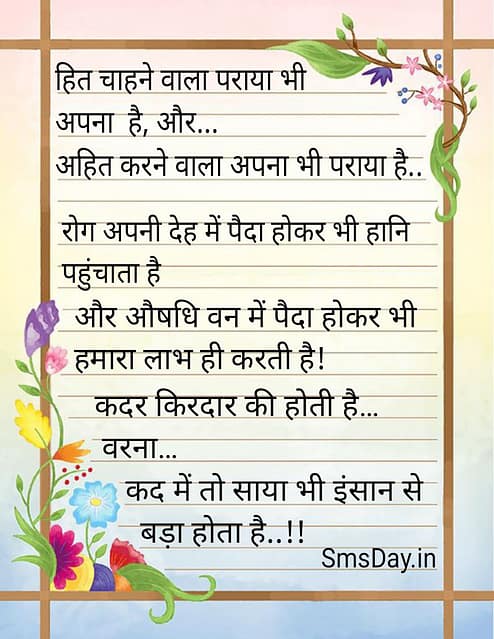 हित चाहने वाला पराया भी
अपना है, और...
अहित करने वाला अपना भी पराया है..
रोग अपनी देह में पैदा होकर भी हानि
पहुंचाता है
और औषधि वन में पैदा होकर भी
हमारा लाभ ही करती है!
कदर किरदार की होती है...
वरना...
कद में तो साया भी इंसान से
बड़ा होता है..!!
SmsDay.in